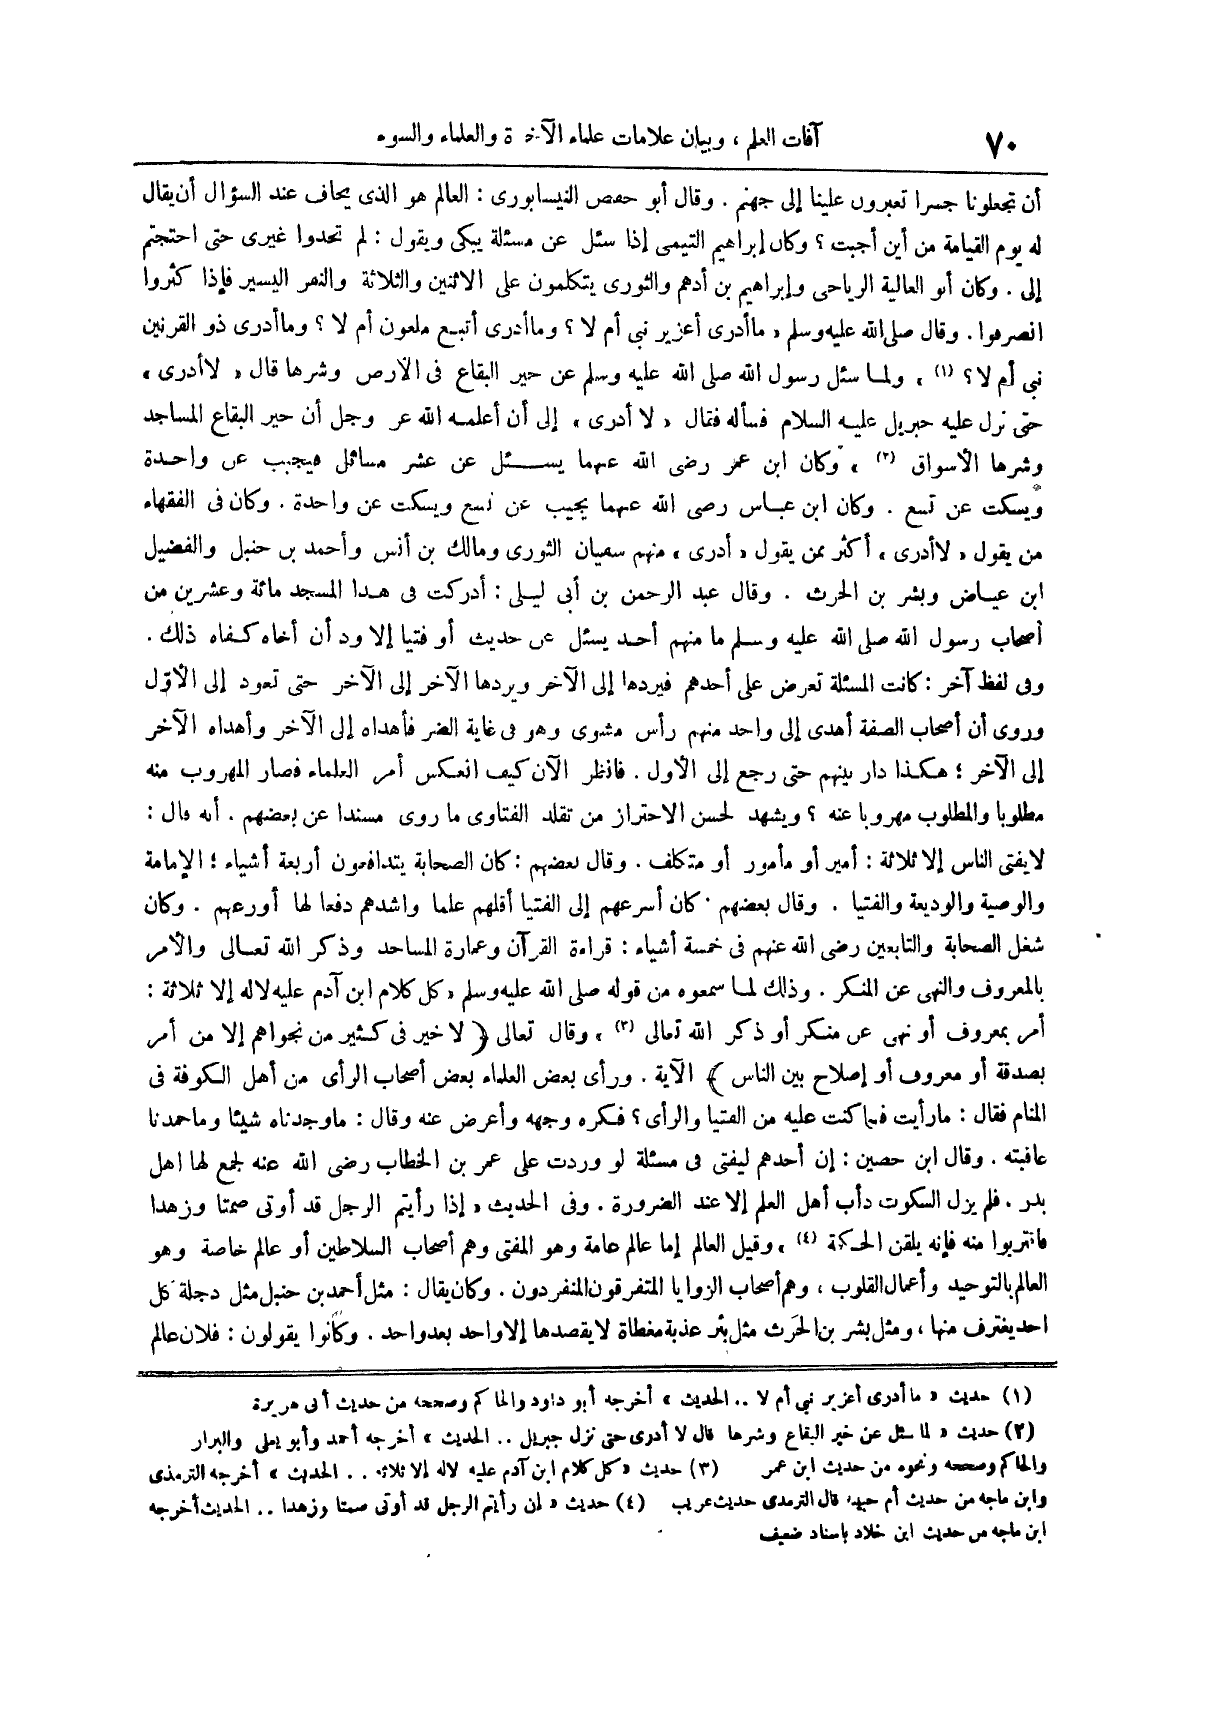 ٧٠
آفات العلم ، وبيان علامات علماء الآخرة والعلماء والسوء
أن تجعلونا جسرا تعبرون علينا إلى جهنم . وقال أبو حفص النيسابورى : العالم هو الذى يخاف عند السؤال أن يقال
له يوم القيامة من أين أجبت ؟ وكان إبراهيم التيمى إذا سئل عن مسئلة يبكى ويقول : لم تجدوا غيرى حتى احتجتم
إلى . وكان أبو العالية الرياحى وإبراهيم بن أدهم والثورى يتكلمون على الاثنين والثلاثة والنفر اليسير فإذا كثروا
انصرفوا . وقال صلى الله عليه وسلم « ما أدرى أعزير نبى أم لا ؟ وما أدرى أتبع ملعون أم لا ؟ وما أدرى ذو القرنين
نبى أم لا ؟ (١) » ولما سئل رسول الله صلى الله عليه وسلم عن خير البقاع فى الأرض وشرها قال « لا أدرى »
حتى نزل عليه جبريل عليه السلام فسأله فقال « لا أدرى » إلى أن أعلمه الله عز وجل أن خير البقاع المساجد
وشرها الأسواق (٢) » وكان ابن عمر رضى الله عنهما يسئل عن عشر مسائل فيجيب عن واحدة
ويسكت عن تسع . وكان ابن عباس رضى الله عنهما يجيب عن تسع ويسكت عن واحدة . وكان فى الفقهاء
من يقول « لا أدرى » أكثر ممن يقول « أدرى » منهم سفيان الثورى ومالك بن أنس وأحمد بن حنبل والفضيل
ابن عياض وبشر بن الحرث . وقال عبد الرحمن بن أبى ليلى : أدركت فى هذا المسجد مائة وعشرين من
أصحاب رسول الله صلى الله عليه وسلم ما منهم أحد يسئل عن حديث أو فتيا إلا ود أن أخاه كفاه ذلك .
وفى لفظ آخر : كانت المسئلة تعرض على أحدهم فيردها إلى الآخر ويردها الآخر إلى الآخر حتى تعود إلى الأول
وروى أن أصحاب الصفة أهدى إلى واحد منهم رأس مشوى وهو فى غاية الضر فأهداه إلى الآخر وأهداه الآخر
إلى الآخر ؛ هكذا دار بينهم حتى رجع إلى الأول . فانظر الآن كيف انعكس أمر العلماء فصار المهروب منه
مطلوبا والمطلوب مهروبا عنه ؟ ويشهد لحسن الاحتراز من تقلد الفتاوى ما روى مسندا عن بعضهم . أنه قال :
لا يفتى الناس إلا ثلاثة : أمير أو مأمور أو متكلف . وقال بعضهم : كان الصحابة يتدافعون أربعة أشياء ؛ الإمامة
والوصية والوديعة والفتيا . وقال بعضهم كان أسرعهم إلى الفتيا أقلهم علما واشدهم دفعا لها أورعهم . وكان
شغل الصحابة والتابعين رضى الله عنهم فى خمسة أشياء : قراءة القرآن وعمارة المساجد وذكر الله تعالى والأمر
بالمعروف والنهى عن المنكر . وذلك لما سمعوه من قوله صلى الله عليه وسلم « كل كلام ابن آدم عليه لا له إلا ثلاثة :
أمر بمعروف أو نهى عن منكر أو ذكر الله تعالى (٣) » وقال تعالى ﴿ لا خير فى كثير من نجواهم إلا من أمر
بصدقة أو معروف أو إصلاح بين الناس ﴾ الآية . ورأى بعض العلماء بعض أصحاب الرأى من أهل الكوفة فى
المنام فقال : ما رأيت فيما كنت عليه من الفتيا والرأى ؟ فكره وجهه وأعرض عنه وقال : ما وجدناه شيئا وما حمدنا
عاقبته . وقال ابن حصين : إن أحدهم ليفتى فى مسئلة لو وردت على عمر بن الخطاب رضى الله عنه لجمع لها اهل
بدر . فلم يزل السكوت دأب أهل العلم إلا عند الضرورة . وفى الحديث « إذا رأيتم الرجل قد أوتى صمتا وزهدا
فاقتربوا منه فإنه يلقن الحكمة (٤) » وقيل العالم إما عالم عامة وهو المفتى وهم أصحاب السلاطين أو عالم خاصة وهو
العالم بالتوحيد وأعمال القلوب ، وهم أصحاب الزوايا المتفرقون المنفردون . وكان يقال : مثل أحمد بن حنبل مثل دجلة كل
احد يغترف منها ، ومثل بشر بن الحرث مثل بئر عذبة مغطاة لا يقصدها إلا واحد بعد واحد . وكانوا يقولون : فلان عالم
(١) حديث « ما أدرى أعزير نبى أم لا .. الحديث » أخرجه أبو داود والحاكم وصححه من حديث أبى هريرة
(٢) حديث « لما سئل عن خير البقاع وشرها قال لا أدرى حتى نزل جبريل .. الحديث » أخرجه أحمد وأبو يعلى والبزار
والحاكم وصححه ونحوه من حديث ابن عمر (٣) حديث « كل كلام ابن آدم عليه لا له إلا ثلاثة .. الحديث » أخرجه الترمذى
وابن ماجه من حديث أم حبيبة قال الترمذى حديث غريب (٤) حديث « إن رأيتم الرجل قد أوتى صمتا وزهدا .. الحديث أخرجه
ابن ماجه من حديث ابن خلاد بإسناد ضعيف